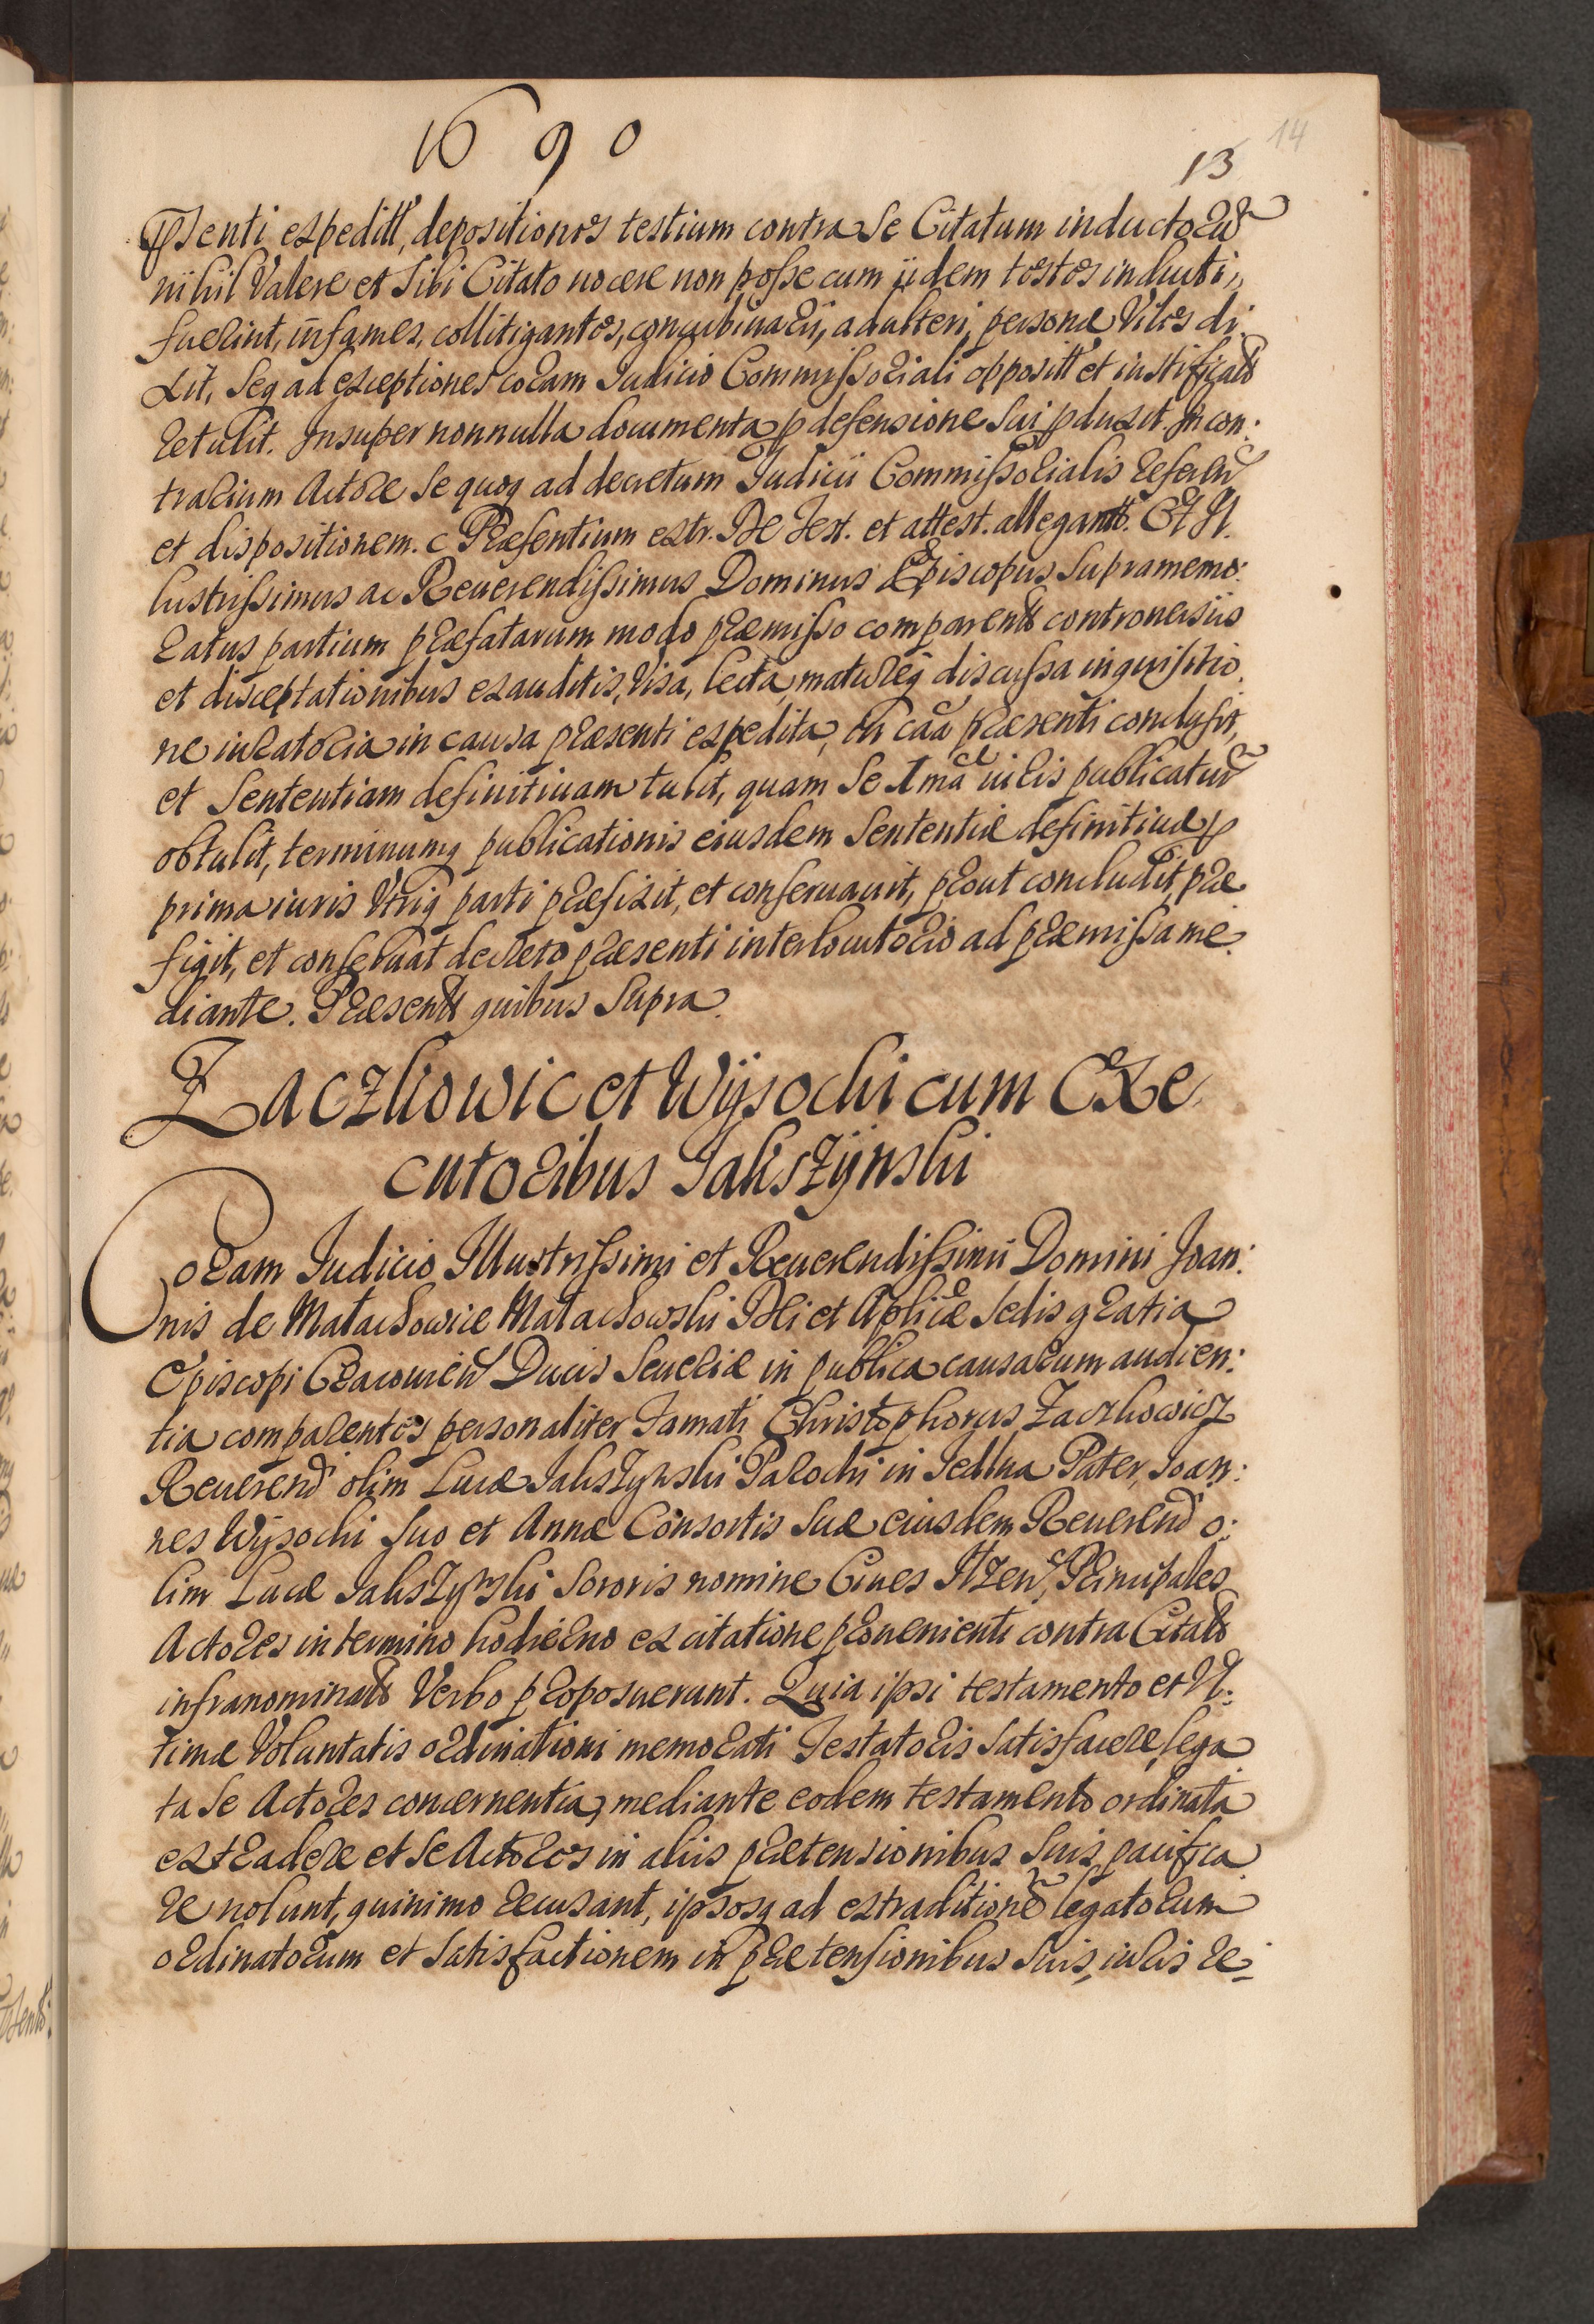 1690
14
13
Psenti expeditt, depositiones testium contra Se Citatum inductorũ
nihil Valere et Sibi Citato nocere non posse cum ijdem testes inducti,
fuerint, infames, collitigantes, concubinarij, adulteri, personæ Viles di:
xit, Seq ad exceptiones coram Judicio Commissoriali oppositt et iustificatt
retulit. Insuper nonnulla documenta p defensione Sui pduxit. In con:
trarium Actore Se quoq ad decretum Judicii Commissorialis referen
et dispositionem. Præsentium extr. De Test. et attest. allegantt. Et Il.
lustrissimus ac Reuerendissimus Dominus Episcopus Supramemo:
ratus partium præfatarum modo præmisso comparentt controuersiis
et disceptationibus exauditis, Visa, lecta, matureq discussa inquisitio.
ne iuratoria in causa præsenti expedita, in caã præsenti conclusit,
et Sententiam definitiuam tulit, quam Se 1ma iuris publicaturũ
obtulit, terminumq publicationis eiusdem Sententiæ definitiuæ p
prima iuris Vtriq parti præfixit, et conseruauit, prout concludit, præ
figit, et conseruat decreto præsenti interlocutorio ad præmissa me
diante. Præsentt quibus Supra.
Zaczkowic et Wijsocki cum Exe
cutoribus Jaliszÿnski
Coram Judicio Illustrissimi et Reuerendissimi Domini Joan:
nis de Małachowice Małachowski Dei et Aplicæ Sedis gratia
Episcopi Cracouien Ducis Seueriæ in publica causarum audien:
tia comparentes personaliter Famati Christophorus Zaczkowicz
Reuerend olim Lucæ Jaliszynski Parochi in Jedlna Pater, Joan:
nes Wijsocki Suo et Annæ Consortis Suæ eiusdem Reuerend o:
lim Lucæ Jaliszynski Sororis nomine Ciues Ilzen, Principales
Actores in termino hodierno ex citatione proueniente contra Citatt
infranominatt Verbo proposuerunt. Quia ipsi testamento et Vl:
timæ Voluntatis ordinationi memorati Testatoris Satisfacere, lega
ta Se Actores concernentia, mediante eodem testamento ordinata
extradere et Se Actores in aliis prætensionibus Suis pacifica
re nolunt, quinimo recusant, ipsosq ad extraditione legatorum
ordinatorum et Satisfactionem in prætensionibus Suis, iuris re: